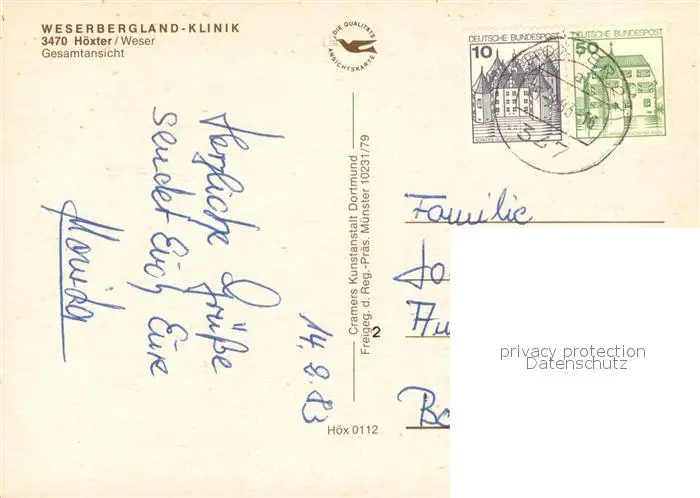 WESERBERGLAND-KLINIK
3470 Höxter/Weser
Gesamtansicht
DIE QUALITÄTS
ANSICHTSKARTE
DEUTSCHE BUNDESPOST
10
DEUTSCHE BUNDESPOST
50
Herzliche Grüße
sendet Euch Eure
Monika
14.8.83
Cramers Kunstanstalt Dortmund
Freigeg. d. Reg.-Präs. Münster 10231/79
2
Höx 0112
Familie
Jo
Au
privacy protection
Datenschutz